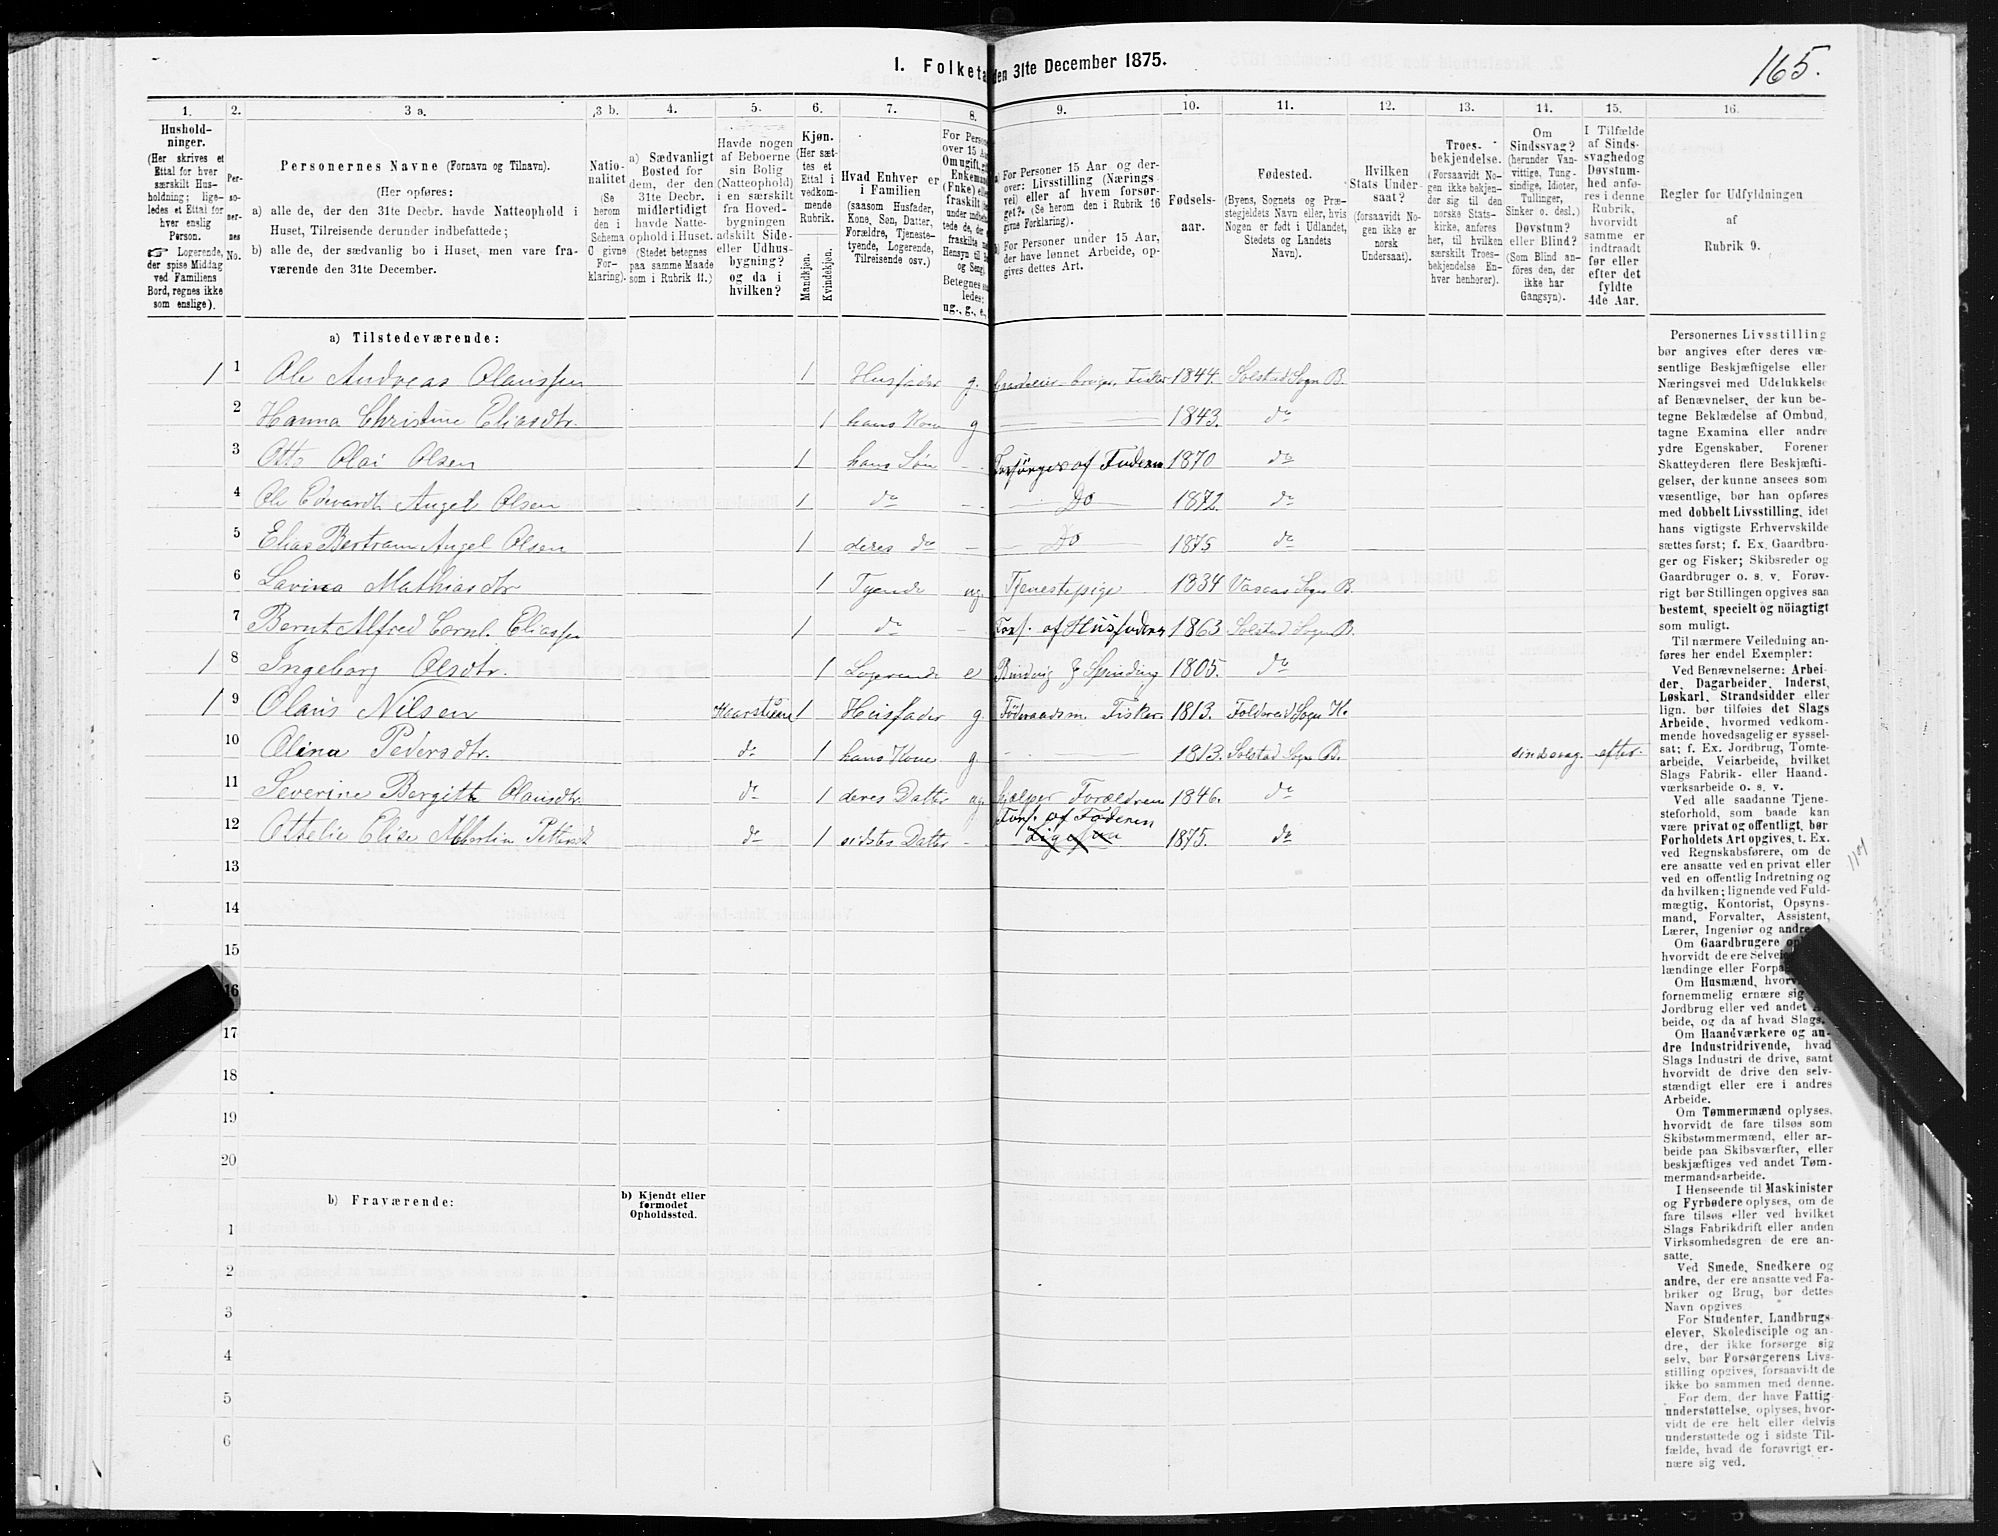 165.
1. Folketæ den 31te December 1875.
1. 2. 3 a. 3 b. 4. 5. 6. 7. 8. 9. 10. 11. 12. 13. 14. 15. 16.
Hushold-
ninger.
(Her skrives et
Ettal for hver
særskilt Hus-
holdning; lige-
ledes et Ettal for
hver enslig
Person.
☞ Logerende,
der spise Middag
ved Familiens
Bord, regnes ikke
som enslige).
Per-
so-
ner-
nes
No.
Personernes Navne (Fornavn og Tilnavn).
(Her opføres:
a) alle de, der den 31te Decbr. havde Natteophold i
Huset, Tilreisende derunder indbefattede;
b) alle de, der sædvanlig bo i Huset, men vare fra-
værende den 31te December.
Natio-
nalitet
(Se
herom
den i
Schema
C givne
For-
klaring).
a) Sædvanligt
Bosted for
dem, der den
31te Decbr.
midlertidigt
havde Natte-
ophold i Huset.
(Stedet betegnes
paa samme Maade
som i Rubrik 11.)
Havde nogen
af Beboerne
sin Bolig
(Natteophold)
i en særskilt
fra Hoved-
bygningen
adskilt Side-
eller Udhus-
bygning?
og da i
hvilken?
Kjøn.
(Her sæt-
tes et
Ettal i
vedkom-
mende
Rubrik.
Mandkjøn.
Kvindekjøn.
Hvad Enhver er
i Familien
(saasom Husfader,
Kone, Søn, Datter,
Forældre, Tjeneste-
tyende, Logerende,
Tilreisende osv.)
For Person
over 15 Aa
Om ugift, gi
Enkeman
(Fnke) elle
fraskilt
Betegnes sa
ledes:
ug., g., e.,
a) For Personer 15 Aar og der-
over: Livsstilling (Nærings-
vei) eller af hvem forsør-
get?. (Se herom den i Rubrik 16
givne Forklaring).
b) For Personer under 15 Aar,
der have lønnet Arbeide, op-
gives dettes Art.
Fødsels-
aar.
Fødested.
(Byens, Sognets og Præ-
stegjeldets Navn eller, hvis
Nogen er født i Udlandet,
Stedets og Landets
Navn).
Hvilken
Stats Under-
saat?
(forsaavidt No-
gen ikke er
norsk
Undersaat).
Troes-
bekjendelse.
(Forsaavidt No-
gen ikke bekjen-
der sig til den
norske Stats-
kirke, anføres
her, til hvilken
særskilt Troes-
bekjendelse En-
hver henhører).
Om
Sindssvag?
(herunder Van-
vittige, Tung-
sindige, Idioter,
Tullinger,
Sinker o. desl.)
Døvstum?
eller Blind?
(Som Blind an-
føres den, der
ikke har
Gangsyn).
I Tilfælde
af Sinds-
svaghed og
Døvstum-
hed anfø-
res i denne
Rubrik,
hvorvidt
samme er
indtraadt
før eller
efter det
fyldte
4de Aar.
Regler for Udfyldningen
af
Rubrik 9.
a) Tilstedeværende:
1 1 Ole Andreas Olaussen 1 Husfader g. Gaardleier-bruger, Fisker 1844. Solstad Sogn B.
2 Hanna Christine Eliasdtr. 1 hans Kone g — 1843. do
3 Otto Olai Olsen 1 hans Søn - Forsørges af Faderen 1870 do
4 Ole Edvardt Angel Olsen 1 do - Do 1872. do
5 Elias Bertram Angel Olsen 1 deres do - Do 1875 do
6 Lavina Mathiasdtr 1 Tyende ug Tjenestepige 1834 Sogn B.
7 Bernt Alfred Cornl. Eliassen 1 do - Fors. af Husfaderen 1863 Solstad Sogn B.
1 8 Ingeborg Olsdtr. 1 Logerende e Spinding 1805. do
1 9 Olaus Nilsen 1 Husfader g. Föderaadsm. Fisker. 1813. Foldereid Sogn K.
10 Olina Pedersdtr. do 1 hans Kone g — 1813. Solstad Sogn B. sindsvag. efter.
11 Severine Bergitte Olausdtr. do 1 deres Datter ug hjælper Forældrene 1846. do
Fors. af Faderen
12 Ottelie Elise Albertine Pettersdt do 1 sidstes Datter - Ligesaa 1875. do
13
14
15
16
17
18
19
20
b) Fraværende:
b) Kjendt eller
formodet
Opholdssted.
1
2
3
4
5
6
Personernes Livsstilling
bør angives efter deres væ-
sentlige Beskjæftigelse eller
Næringsvei med Udelukkelse
af Benævnelser, der kun be-
tegne Beklædelse af Ombud,
tagne Examina eller andre
ydre Egenskaber. Forener
Skatteyderen flere Beskjæfti-
gelser, der kunne ansees som
væsentlige, bør han opføres
med dobbelt Livsstilling, idet
hans vigtigste Erhvervskilde
sættes først; f. Ex. Gaardbru-
ger og Fisker; Skibsreder og
Gaardbruger o. s. v. Forøv-
rigt bør Stillingen opgives saa
bestemt, specielt og nöiagtigt
som muligt.
Til nærmere Veiledning an-
føres her endel Exempler:
Ved Benævnelserne: Arbei-
der, Dagarbeider, Inderst,
Løskarl, Strandsidder eller
lign. bør tilføies det Slags
Arbeide, hvormed vedkom-
mende hovedsagelig er syssel-
sat; f. Ex. Jordbrug, Tomte-
arbeide, Veiarbeide, hvilket
Slags Fabrik- eller Haand-
værksarbeide o. s. v.
Ved alle saadanne Tjene-
steforhold, som baade kan
være privat og offentligt, bør
Forholdets Art opgives, t. Ex.
ved Regnskabsførere, om de
ere ansatte ved en privat eller
ved en offentlig Indretning og
da hvilken; lignende ved Fuld-
mægtig, Kontorist, Opsyns-
mand, Forvalter, Assistent,
Lærer, Ingeniør og andre.
Om Gaardbrugere op
hvorvidt de ere Selvei
lændinge eller Forpa
Om Husmænd, hvor
fornemmelig ernære sig
Jordbrug eller ved andet A
beide, og da af hvad Slags.
Om Haandværkere og an-
dre Industridrivende, hvad
Slags Industri de drive, samt
hvorvidt de drive den selv-
stændigt eller ere i andres
Arbeide.
Om Tømmermænd oplyses,
hvorvidt de fare tilsøs som
Skibstømmermænd, eller ar-
beide paa Skibsværfter, eller
beskjæftiges ved andet Tøm-
mermandsarbeide.
I Henseende til Maskinister
og Fyrbødere oplyses, om de
fare tilsøs eller ved hvilket
Slags Fabrikdrift eller anden
Virksomhedsgren de ere an-
satte.
Ved Smede, Snedkere og
andre, der ere ansatte ved Fa-
briker og Brug, bør dettes
Navn opgives.
For Studenter, Landbrugs-
elever, Skoledisciple og an-
dre, der ikke forsørge sig
selv, bør Forsørgerens Livs-
stilling opgives, forsaavidt de
ikke bo sammen med denne.
For dem, der have Fattig-
understøttelse, oplyses, hvor-
vidt de ere helt eller delvis
understøttede og i sidste Til-
fælde, hvad de forøvrigt er-
nære sig ved.